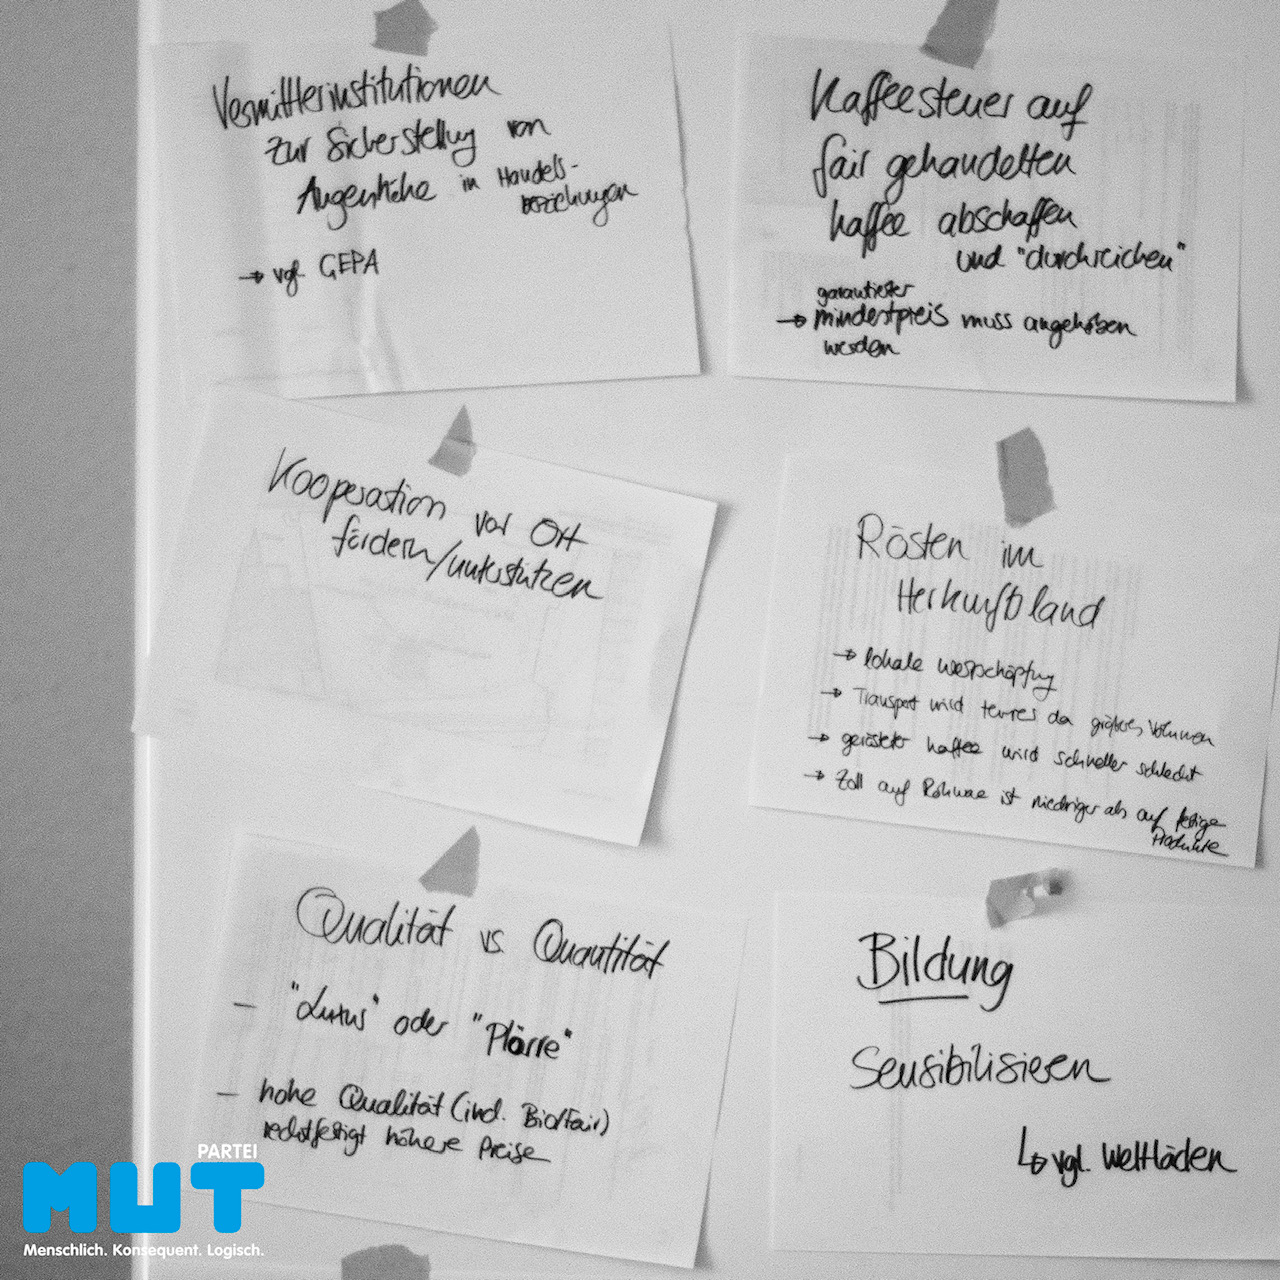 Vermittlerinstitutionen
zur Sicherstellung von
Augenhöhe in Handels-
beziehungen
→ vgl. GEPA
Kaffeesteuer auf
fair gehandelten
Kaffee abschaffen
und "durchreichen"
garantierter
→ mindestpreis muss angehoben
werden
Kooperation vor Ort
fördern/unterstützen
Rösten im
Herkunftsland
→ lokale Wertschöpfung
→ Transport wird teurer da größeres Volumen
→ gerösteter Kaffee wird schneller schlecht
→ Zoll auf Rohware ist niedriger als auf fertige
Produkte
Qualität vs Quantität
- "Luxus" oder "Plörre"
- hohe Qualität (incl. Bio/Fair)
rechtfertigt höhere Preise
Bildung
Sensibilisieren
↳ vgl. Weltläden
PARTEI
MUT
Menschlich. Konsequent. Logisch.